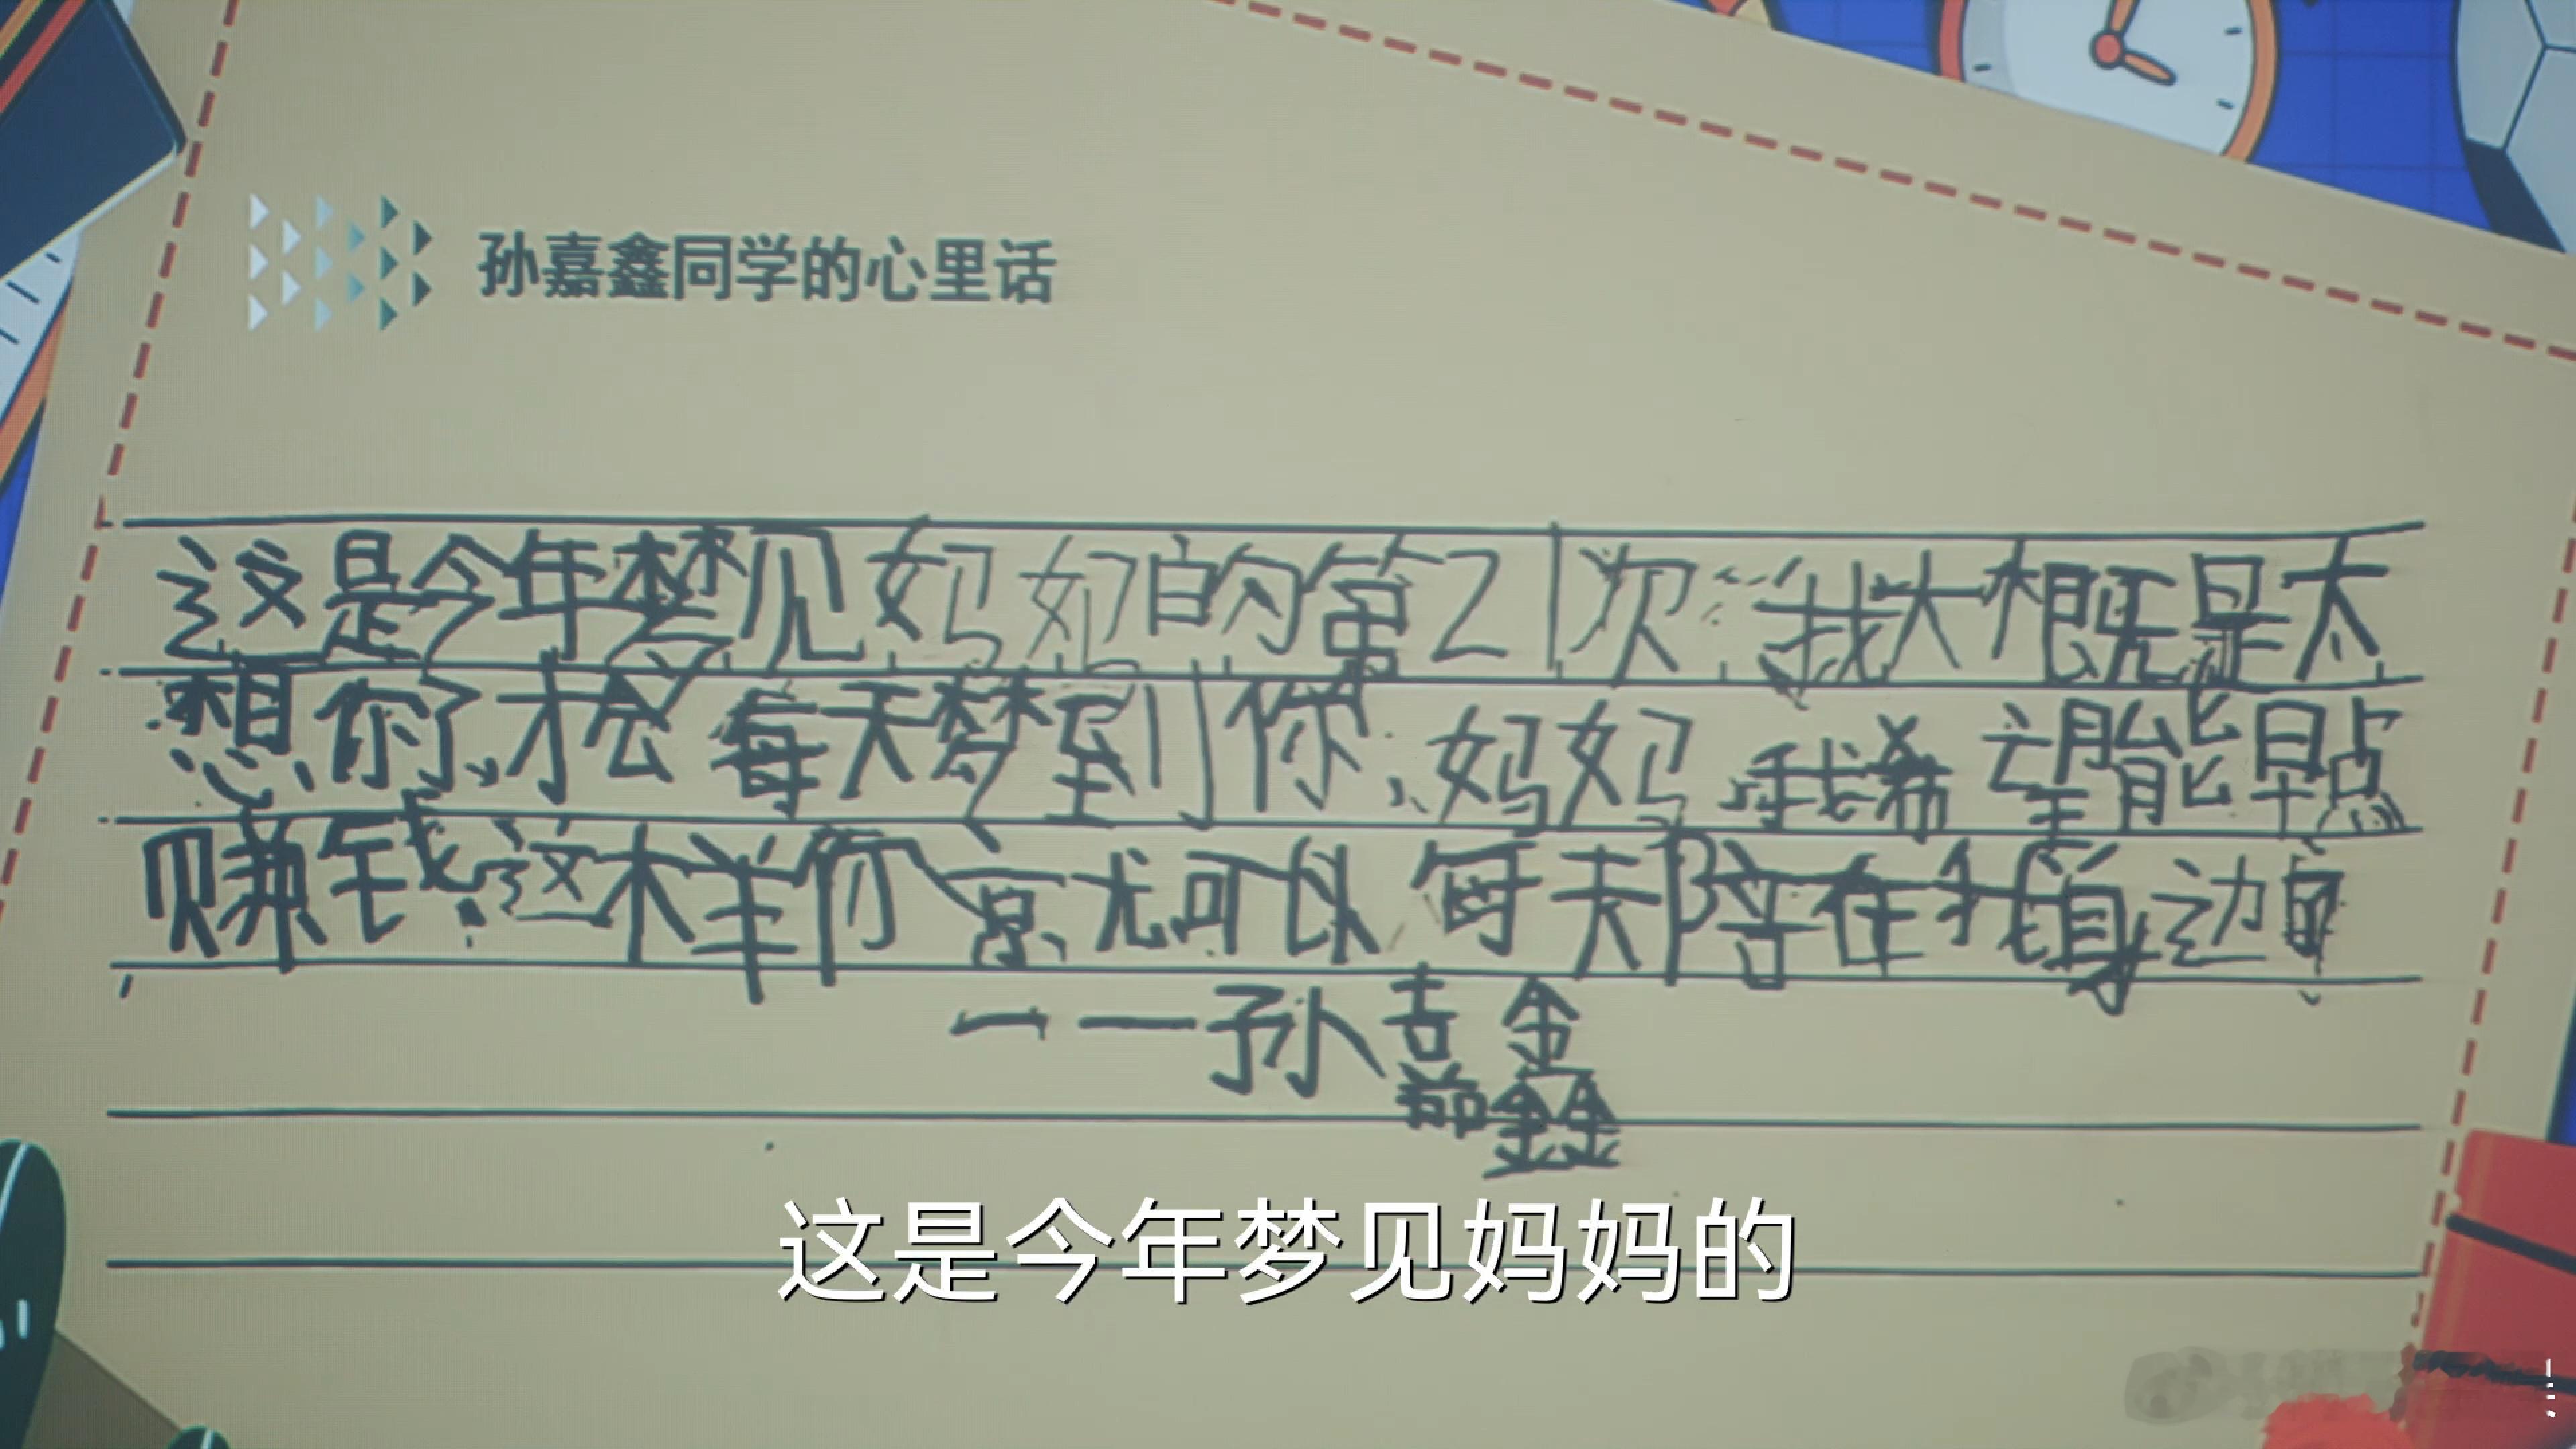 孙嘉鑫同学的心里话
这是今年梦见妈妈的第21次，我大概是太
想你了，才会每天梦到你，妈妈，我希望能早点
赚钱，这样你就可以每天陪在我身边
——孙嘉鑫
这是今年梦见妈妈的